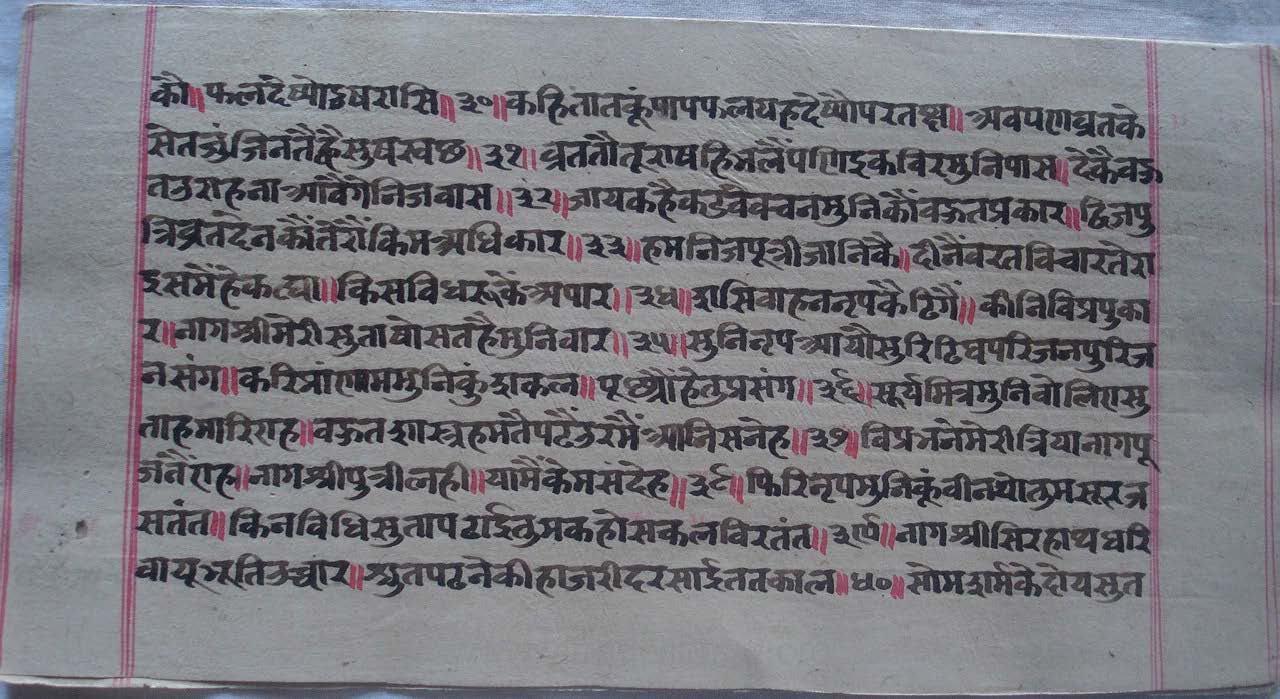 कौ॥ फलदेष्योदुषरासि॥ ३०॥ कहितातकूंपापफलयहदेष्यौपरतक्ष॥ अवपणव्रतके
सेतजुंजिनतैंह्वैसुषस्वछ॥ ३१॥ व्रततौतूराषहिभलैंपणिइकविरमुनिपास॥ देकैवऊ
तउराहनाआंवैंगेनिजवास॥ ३२॥ जायकहैकटुंवेकवचनमुनिकौंवऊतप्रकार॥ द्विजपु
त्रिव्रतदेनकौंतेरौंकिमअधिकार॥ ३३॥ हमनिजपूत्रीजानिकै॥ दीनैंवरतविचारतेरा
इसमेंहेकह्या॥ किसविधरूकेंअपार॥ ३४॥ द्रासिवाहननृपकैढिगैं॥ कीनिविप्रपुका
र॥ नागश्रीमेरीसुताषोसतहैमुनिवार॥ ३५॥ सुनिनृपआयौसुरिढिघपरिजनपुरिज
नसंग॥ करिप्रांणाममुनिकुंद्राकल॥ पूछ्यौंहेतुप्रसंग॥ ३६॥ सूर्यमित्रमुनिवोलिएसु
ताहमारिएह॥ वऊतशास्त्रहमतैपढैंउरमैंआनिसनेह॥ ३७॥ विप्रभनेमेरीत्रियानागपू
जंतैंएह॥ नागश्रीपुत्रीलही॥ यामैंकेमसंदेह॥ ३८॥ फिरिनृपमुनिकूंवीनयोतुमसूरज
सतंत॥ किनविधिसुतापढाईतुमकहोसकलविरतंत॥ ३९॥ नागश्रीसिरहाथधरि
वायूभूतिउच्चार॥ श्रुतपढनेकीहाजरीदरसाईततकाल॥ ४०॥ सोमशर्मकेदोयसुत